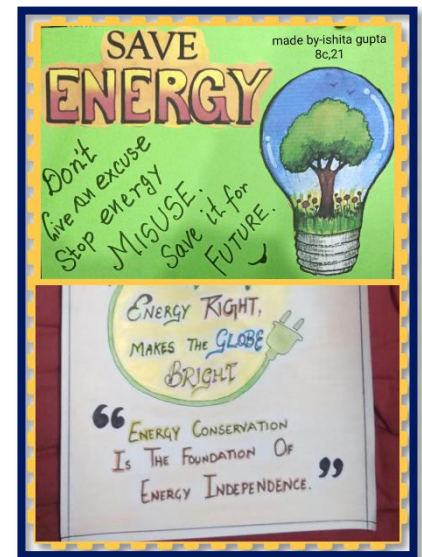 SAVE
ENERGY
made by-ishita gupta
8c,21
Don't
Give an excuse
Stop energy
MISUSE.
Save it for
FUTURE.
ENERGY RIGHT,
MAKES THE GLOBE
BRIGHT
“ENERGY CONSERVATION
IS THE FOUNDATION OF
ENERGY INDEPENDENCE.”